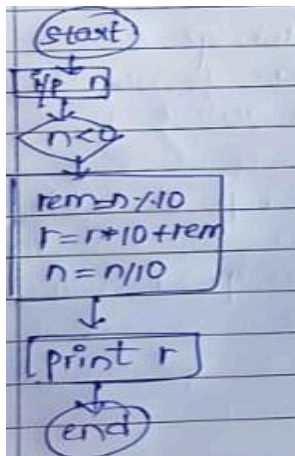 start
i/p n
n<0
rem=n%10
r=r*10+rem
n=n/10
print r
end